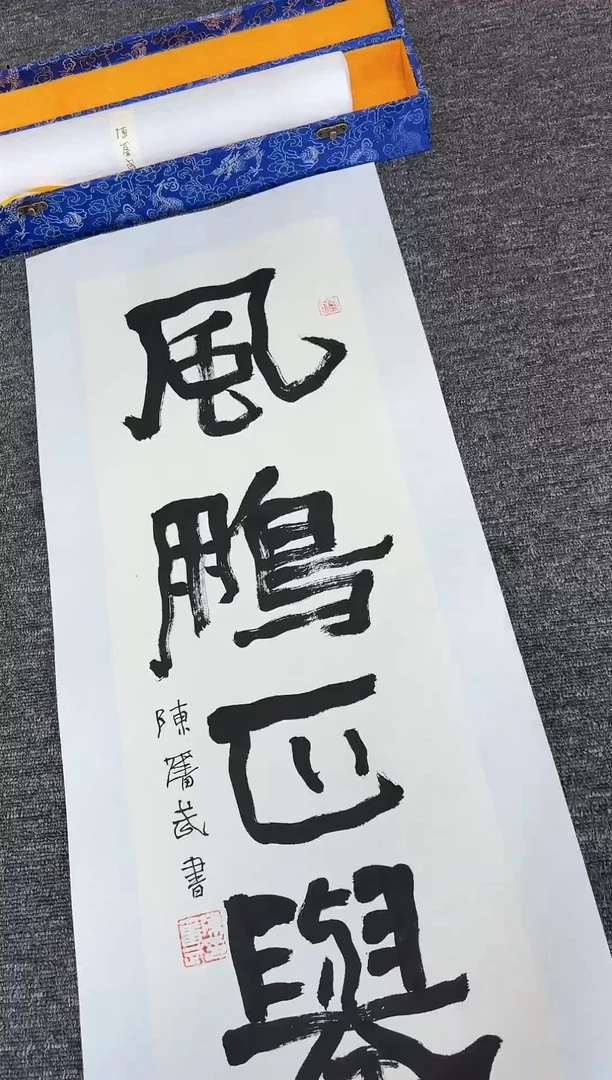 陳奮武
風鵬正舉
陳奮武書